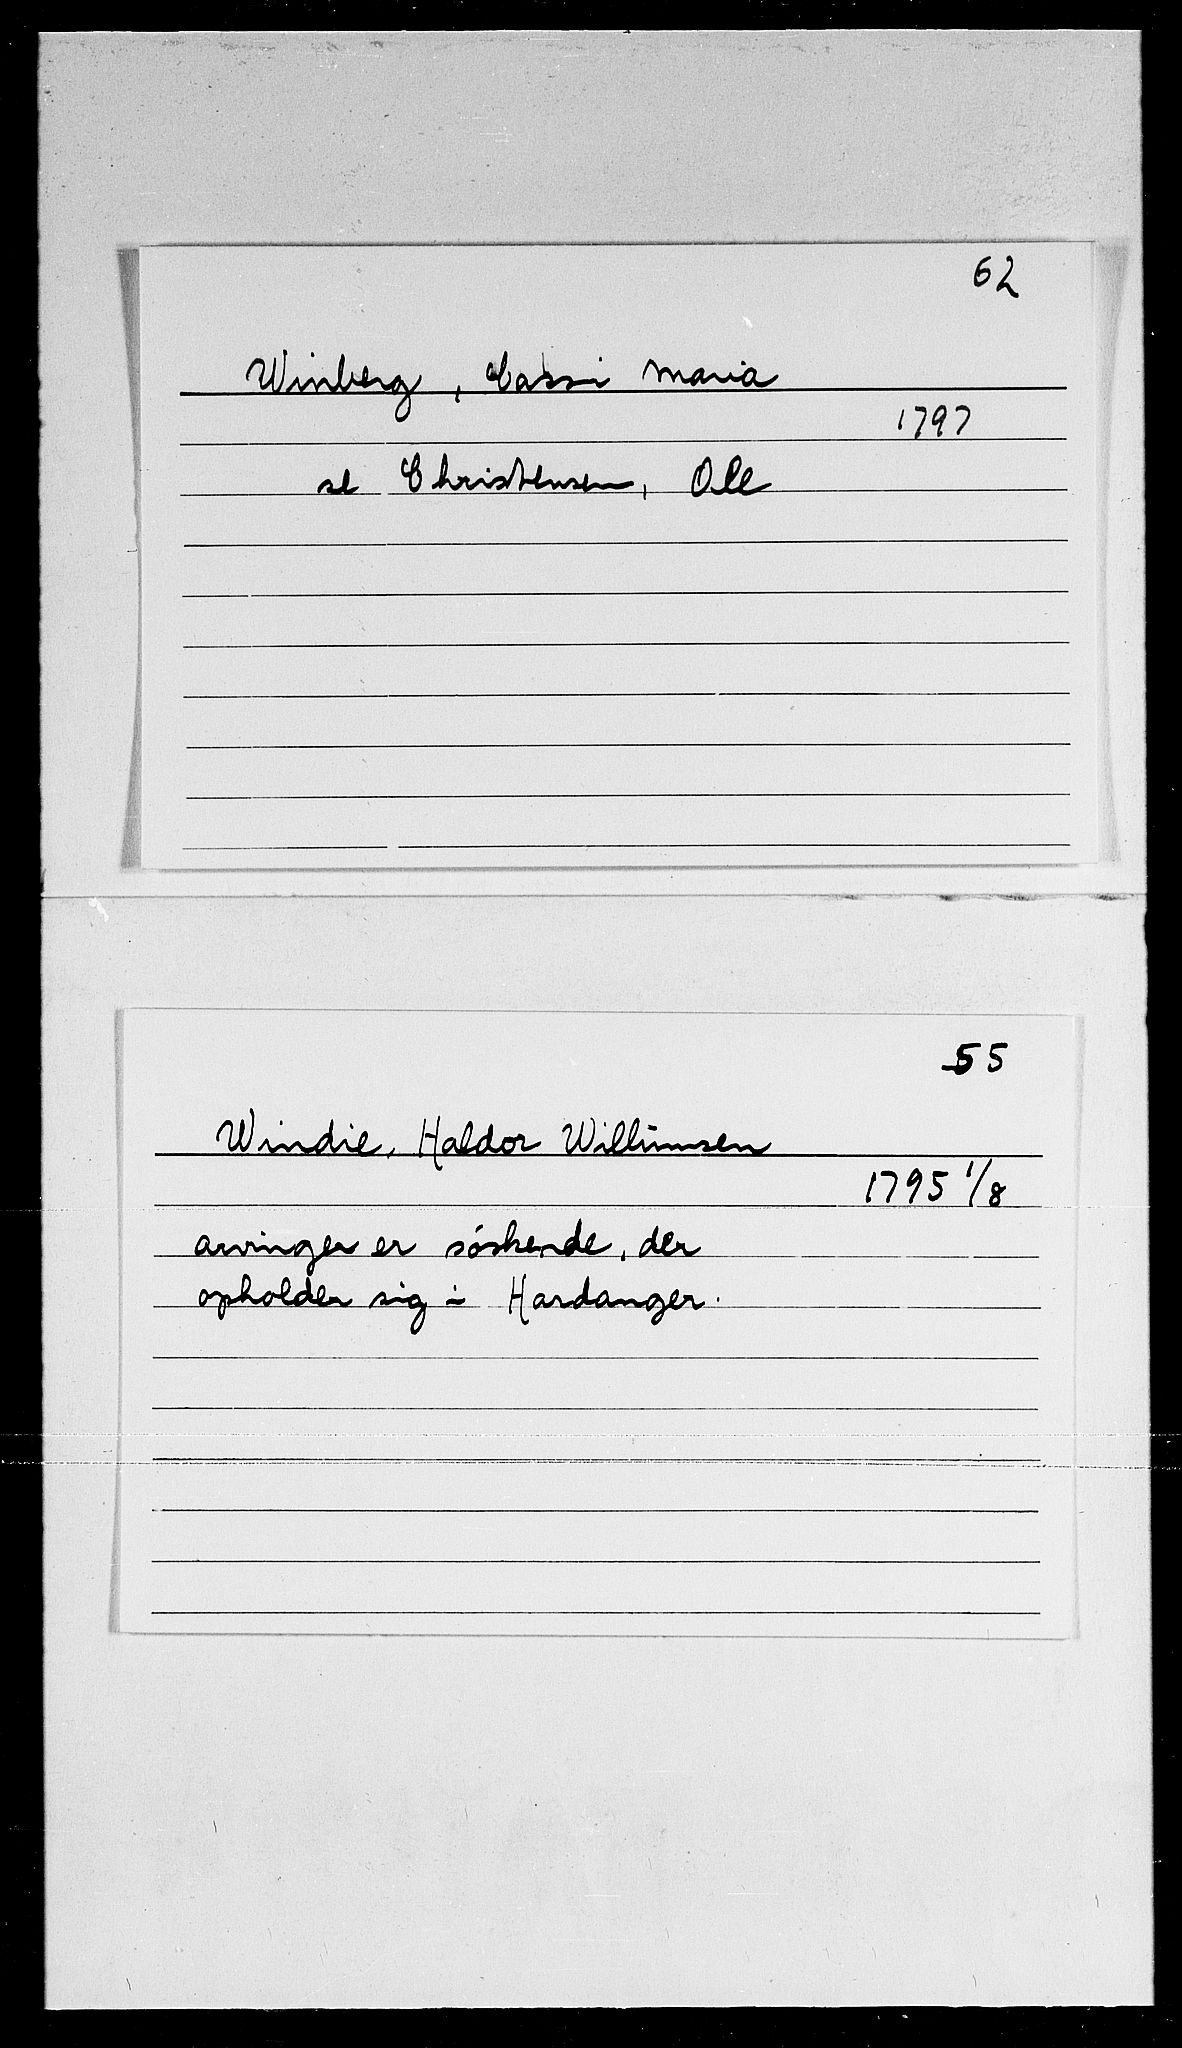 62
Winberg, Cassi Maria
1797
se Christensen, Ole
55
Windie, Haldor Willumsen
1795 1/8
arvinger er søskende, der
opholder sig i Hardanger.